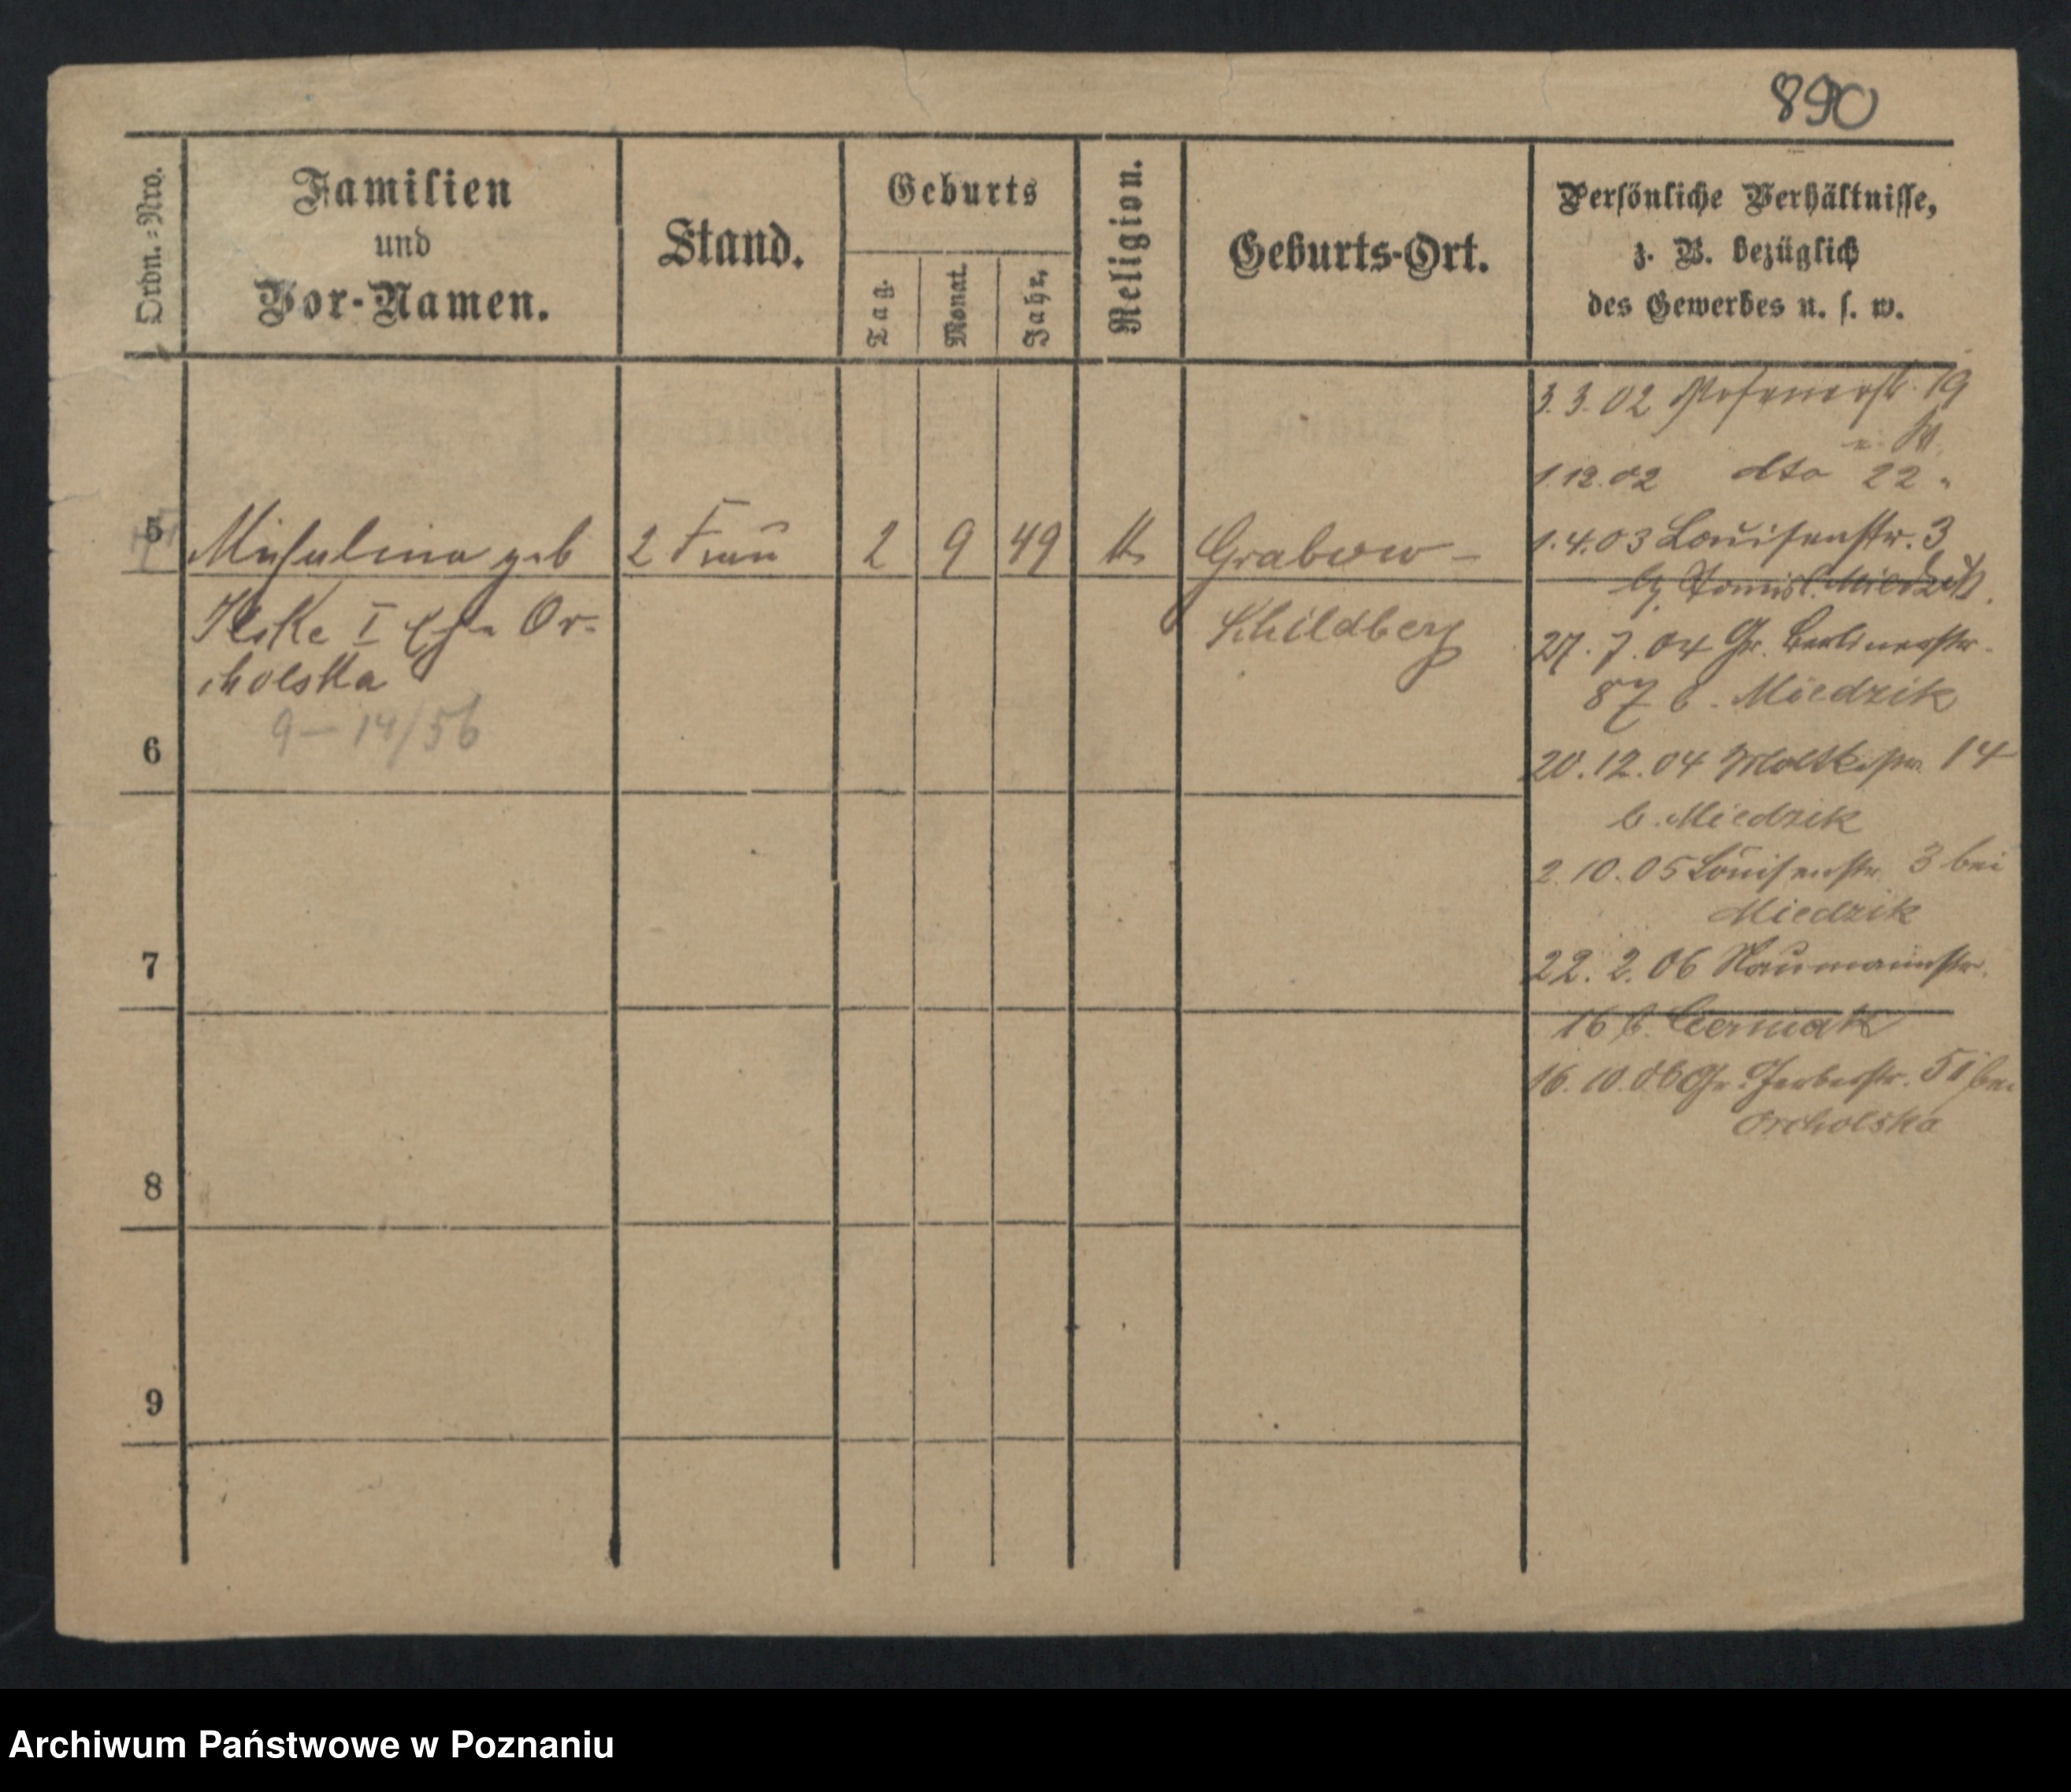 890
Ordn.-Nro.
Familien
und
Vor-Namen.
Stand.
Geburts
Tag.
Monat.
Jahr.
Religion.
Geburts-Ort.
Persönliche Verhältnisse,
z. B. bezüglich
des Gewerbes u. s. w.
3.3.02 Posenerstr. 19
1.12.02 dto 22 "
5 Michalina geb 2 Frau 2 9 49 k Grabow -
1.4.03 Louisenstr. 3
Miedzik
Ilske I Ehe Or-
Schildberg
27.7.04 Gr. Berlinerstr.
cholska
87 b. Miedzik
9-14/56
6
20.12.04 Moltkestr. 14
b. Miedzik
2.10.05 Louisenstr. 3 bei
Miedzik
7
22.2.06 Naumannstr.
16 b.
16.10.06 Gr. Gerberstr. 51 bei
Orcholska
8
9
Archiwum Państwowe w Poznaniu